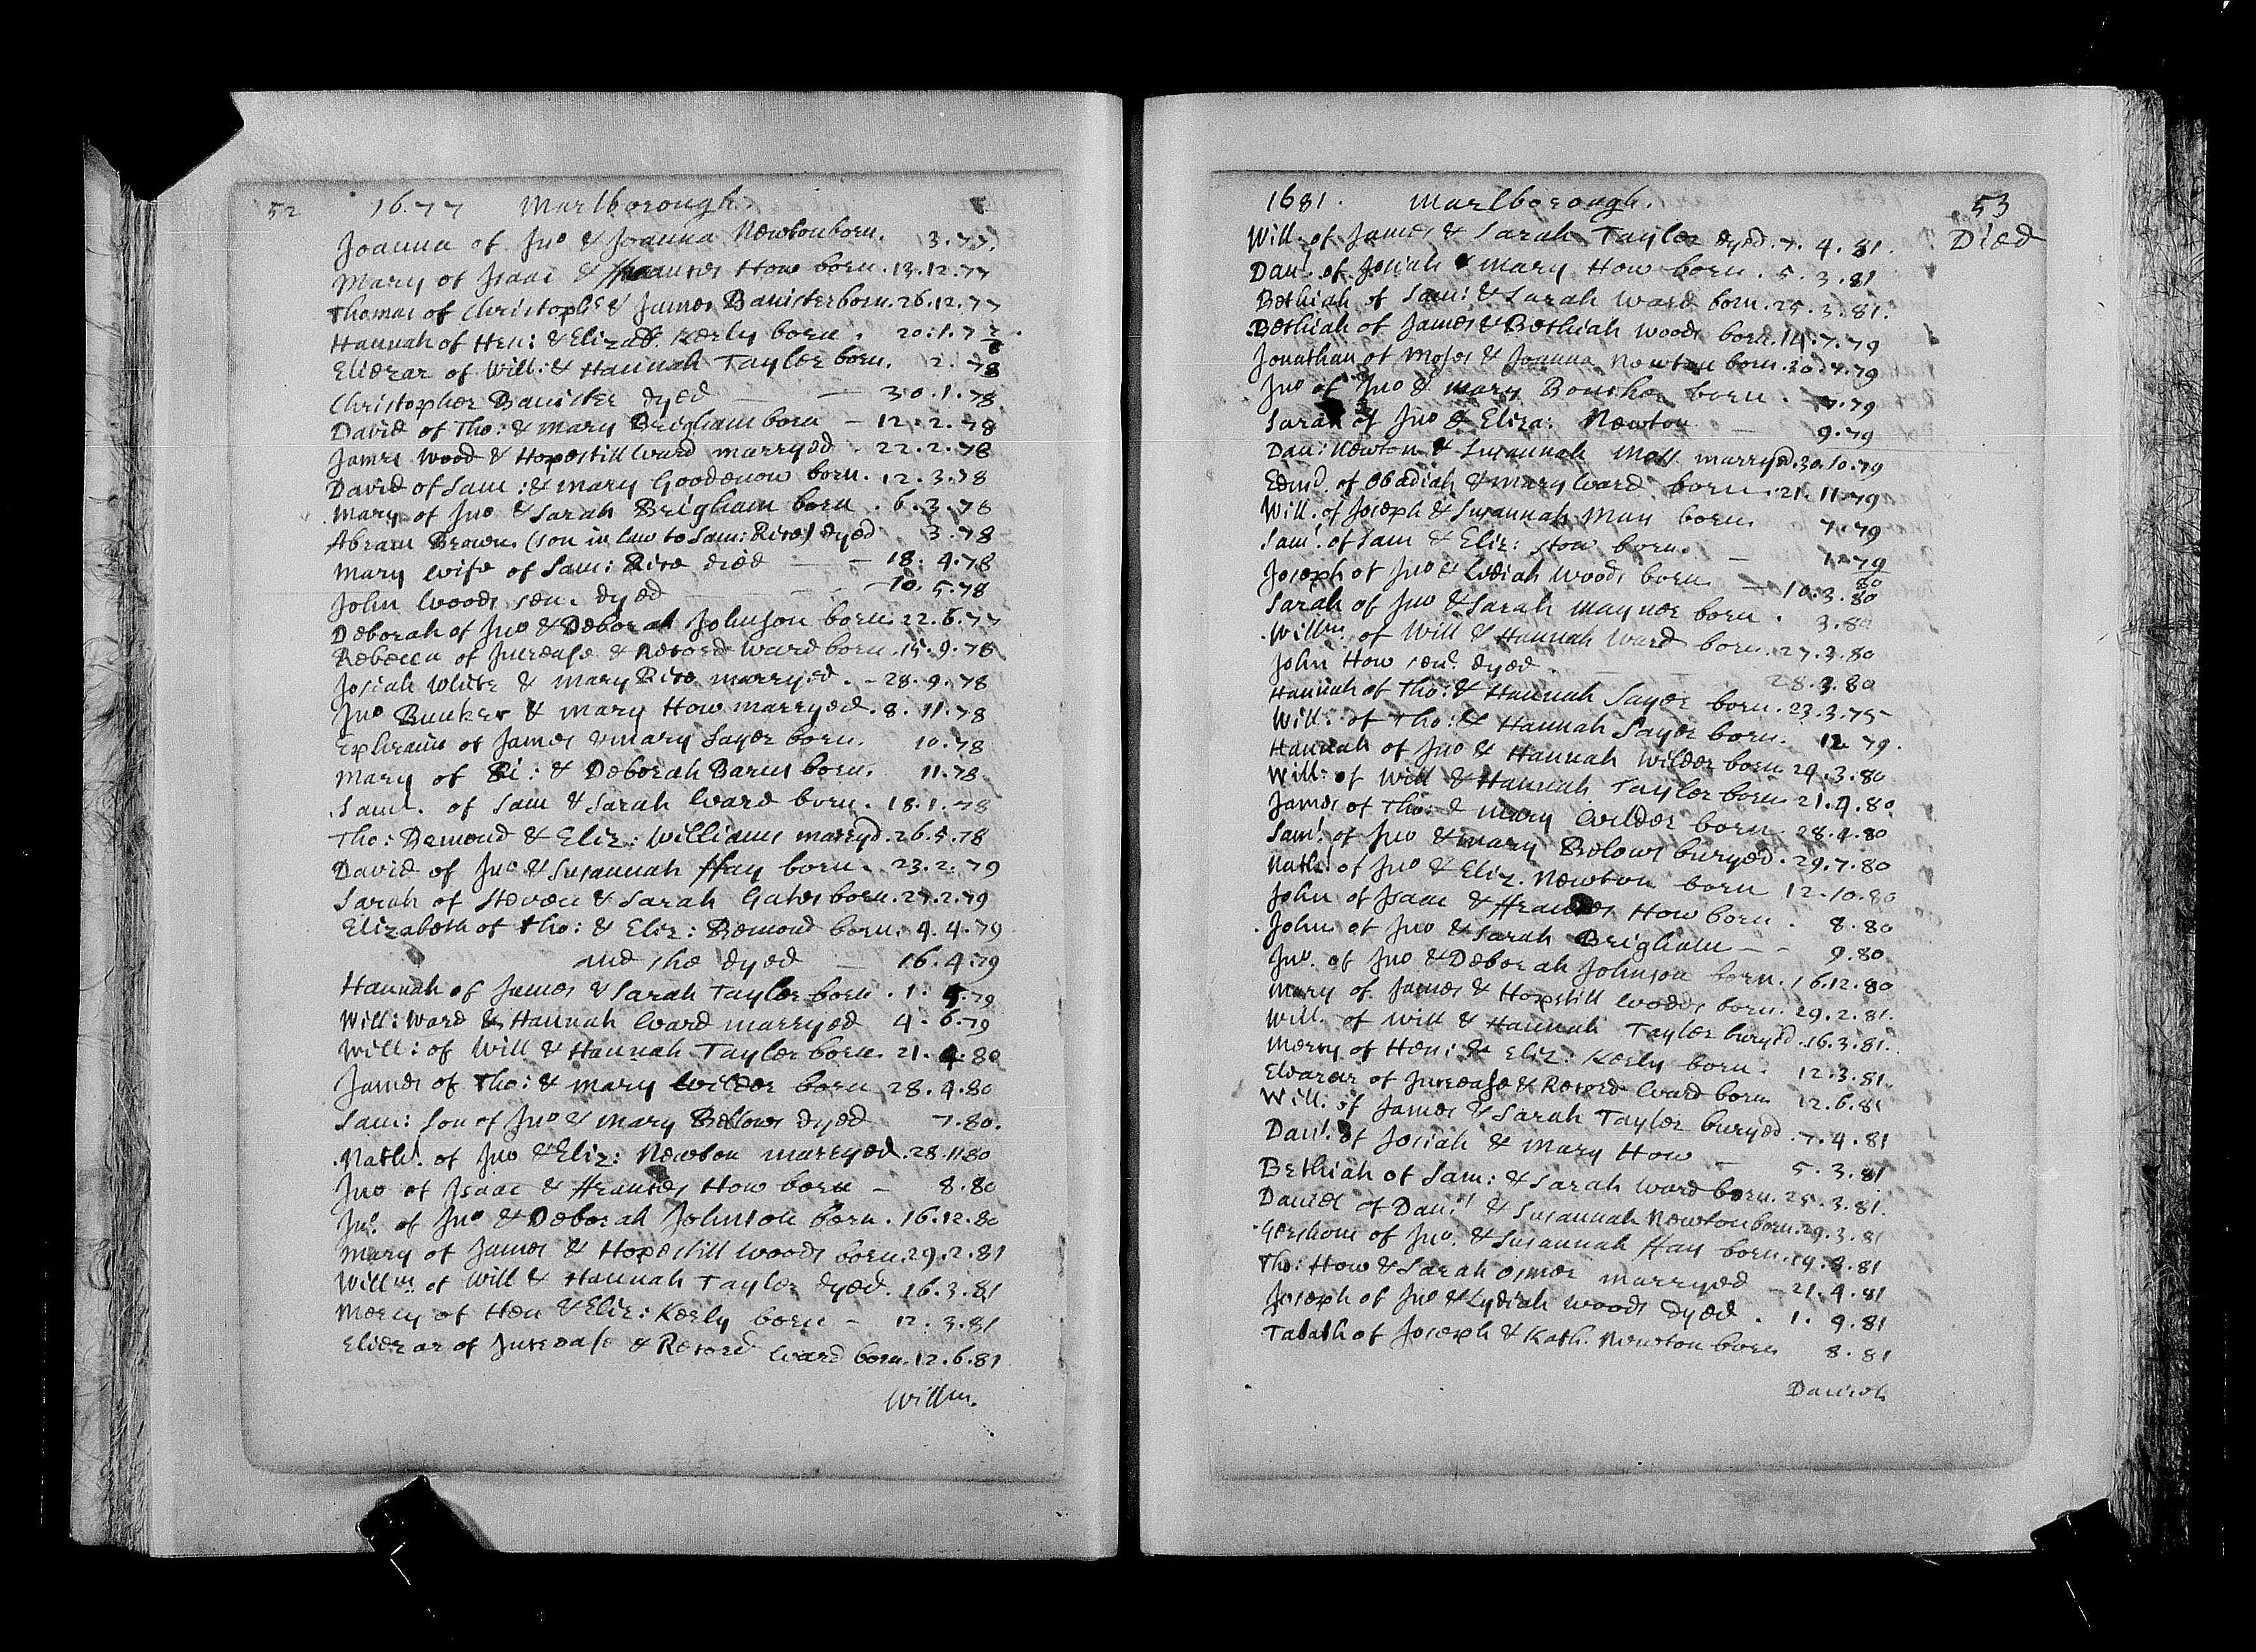 52 16.77 Marlborough.
Joanna of Jno & Joanna Newton born. 3.77.
Mary of Isaac & ffrances How born. 13.12.77
Thomas of Christoph: & James Banister born. 26.12.77
Hannah of Hen: & Elizab. Kerly born. 20.1.7 7/8.
Eliezar of Will: & Hannah Tayler born. 2.78
Christopher Banister dyed — — 30.1.78
David of Tho: & Mary Brigham born — 12.2.78
James Wood & Hopestill Ward marryed. 22.2.78
David of Sam: & Mary Goodenow born. 12.3.78
Mary of Jno & Sarah Brigham born. 6.3.78
Abram Brown. (son in law to Sam: Rice) dyed 3.78
Mary wife of Sam: Rice died — — 18.4.78
John Woods sen. dyed — 10.5.78
Deborah of Jno & Deborah Johnson born. 22.6.77
Rebecca of Increase & Record Ward born. 15.9.78
Josiah White & Mary Rice marryed. — 28.9.78
Jno Bunker & Mary How marryed. 8.11.78
Ephraim of James & Mary Sayer born. 10.78
Mary of Ri: & Deborah Barns born. 11.78
Saml. of Sam & Sarah Ward born. 18.1.78
Tho: Bemond & Eliz: Williams marryd. 26.5.78
David of Jno & Susannah ffay born. 23.2.79
Sarah of Steven & Sarah Gates born. 27.2.79
Elizabeth of Tho: & Eliz: Bemond born. 4.4.79
and she dyed — 16.4.79
Hannah of James & Sarah Tayler born. 1.5.79
Will: Ward & Hannah Ward marryed 4.6.79
Will: of Will & Hannah Tayler born. 21.4.80
James of Tho: & Mary Wilder born 28.4.80
Sam: son of Jno & Mary Bellows dyed 7.80.
Nathl. of Jno & Eliz: Newton marryed. 28.11.80
Jno of Isaac & ffrances How born — 8.80
Jno. of Jno & Deborah Johnson born. 16.12.80
Mary of James & Hopestill Woods born. 29.2.81
Willm. of Will & Hannah Tayler dyed. 16.3.81
Mercy of Hen & Eliz: Kerly born — 12.3.81
Eliezar of Increase & Record Ward born. 12.6.81
Willm.
1681. Marlborough. 53
Will: of James & Sarah Tayler dyed. 7.4.81. Died
Danl. of Josiah & Mary How born. 5.3.81
Bethiah of Sam: & Sarah Ward born. 25.3.81.
Bethiah of James & Bethiah Woods born. 14.7.79
Jonathan of Moses & Joanna Newton born. 30.7.79
Jno of Jno & Mary born. 7.79
Sarah of Jno & Eliza: Newton — 9.79
Dan: Newton & Susannah Moss marryed. 30.10.79
Edmd. of Obadiah & Mary Ward born. 21.11.79
Will. of Joseph & Susannah May born. 7.79
Saml. of Sam & Eliz: Stow born. — 1.79/80
Joseph of Jno & Lydiah Woods born — 10.3.80
Sarah of Jno & Sarah Maynor born. 3.80
Willm. of Will & Hannah Ward born. 27.3.80
John How senr. dyed 28.3.80
Hannah of Tho: & Hannah Sayer born. 23.3.75
Will: of Tho: & Hannah Sayer born. 12.79.
Hannah of Jno & Hannah Wilder born 29.3.80
Will: of Will & Hannah Tayler born 21.4.80
James of Tho: & Mary Wilder born 28.4.80
Saml. of Jno & Mary Belows buryed. 29.7.80
Nathl. of Jno & Eliz. Newton born 12.10.80
John of Isaac & ffrances How born. 8.80
John of Jno & Sarah Brigham — — 9.80
Jno. of Jno & Deborah Johnson born. 16.12.80
Mary of James & Hopstill Woods born. 29.2.81.
Will. of Will & Hannah Tayler buryed. 16.3.81.
Mercy of Hen: & Eliz: Kerly born. 12.3.81.
Elazar of Increase & Record Ward born 12.6.81
Will. of James & Sarah Tayler buryed. 7.4.81
Danl. of Josiah & Mary How — 5.3.81
Bethiah of Sam: & Sarah Ward born. 25.3.81.
Daniel of Danll & Susannah Newton born. 29.3.81
Gershom of Jno. & Susannah ffay born. 19.8.81
Tho: How & Sarah Osmer marryed — 21.4.81
Joseph of Jno & Lydiah Woods dyed. 1.9.81
Tabath of Joseph & Kath. Newton born 8.81
Daniel